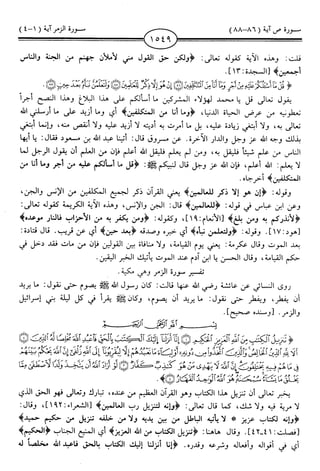 سورة ص آية (٨٦-٨٨)
١٥٤٩
سورة الزمر آية (١-٤)
قلت: وهذه الآية كقوله تعالى: ﴿ولكن حق القول مني لأملأن جهنم من الجنة والناس
أجمعين﴾ [السجدة: ١٣].
﴿قُلْ مَا أَسْأَلُكُمْ عَلَيْهِ مِنْ أَجْرٍ وَمَا أَنَا مِنَ الْمُتَكَلِّفِينَ ۝ إِنْ هُوَ إِلَّا ذِكْرٌ لِلْعَالَمِينَ ۝ وَلَتَعْلَمُنَّ نَبَأَهُ بَعْدَ حِينٍ ۝﴾
يقول تعالى قل يا محمد لهؤلاء المشركين ما أسألكم على هذا البلاغ وهذا النصح أجراً
تعطونيه من عرض الحياة الدنيا، ﴿وما أنا من المتكلفين﴾ أي وما أزيد على ما أرسلني الله
تعالى به، ولا أبتغي زيادة عليه، بل ما أمرت به أديته لا أزيد عليه ولا أنقص منه، وإنما أبتغي
بذلك وجه الله عز وجل والدار الآخرة. عن مسروق قال: أتينا عبد الله بن مسعود فقال: يا أيها
الناس من علم شيئاً فليقل به، ومن لم يعلم فليقل الله أعلم فإن من العلم أن يقول الرجل لما
لا يعلم: الله أعلم، فإن الله عز وجل قال لنبيكم ﷺ: ﴿قل ما أسألكم عليه من أجر وما أنا من
المتكلفين﴾ أخرجاه.
وقوله: ﴿إن هو إلا ذكر للعالمين﴾ يعني القرآن ذكر لجميع المكلفين من الإنس والجن،
وعن ابن عباس في قوله: ﴿للعالمين﴾ قال: الجن والإنس، وهذه الآية الكريمة كقوله تعالى:
﴿لأنذركم به ومن بلغ﴾ [الأنعام: ١٩]، وكقوله: ﴿ومن يكفر به من الأحزاب فالنار موعده﴾
[هود: ١٧]. وقوله: ﴿ولتعلمن نبأه﴾ أي خبره وصدقه ﴿بعد حين﴾ أي عن قريب. قال قتادة:
بعد الموت وقال عكرمة: يعني يوم القيامة، ولا منافاة بين القولين فإن من مات فقد دخل في
حكم القيامة، وقال الحسن يا ابن آدم عند الموت يأتيك الخبر اليقين.
تفسير سورة الزمر وهي مكية.
روى النسائي عن عائشة رضي الله عنها قالت: كان رسول الله ﷺ يصوم حتى نقول: ما يريد
أن يفطر، ويفطر حتى نقول: ما يريد أن يصوم، وكان ﷺ يقرأ في كل ليلة بني إسرائيل
والزمر. [وسنده صحيح].
بسم الله الرحمن الرحيم
﴿تَنزِيلُ الْكِتَابِ مِنَ اللَّهِ الْعَزِيزِ الْحَكِيمِ ۝ إِنَّا أَنزَلْنَا إِلَيْكَ الْكِتَابَ بِالْحَقِّ فَاعْبُدِ اللَّهَ مُخْلِصًا لَّهُ الدِّينَ ۝
أَلَا لِلَّهِ الدِّينُ الْخَالِصُ وَالَّذِينَ اتَّخَذُوا مِن دُونِهِ أَوْلِيَاءَ مَا نَعْبُدُهُمْ إِلَّا لِيُقَرِّبُونَا إِلَى اللَّهِ زُلْفَىٰ إِنَّ اللَّهَ يَحْكُمُ بَيْنَهُمْ
فِي مَا هُمْ فِيهِ يَخْتَلِفُونَ إِنَّ اللَّهَ لَا يَهْدِي مَنْ هُوَ كَاذِبٌ كَفَّارٌ ۝ لَّوْ أَرَادَ اللَّهُ أَن يَتَّخِذَ وَلَدًا لَّاصْطَفَىٰ مِمَّا
يَخْلُقُ مَا يَشَاءُ سُبْحَانَهُ هُوَ اللَّهُ الْوَاحِدُ الْقَهَّارُ ۝﴾
يخبر تعالى أن تنزيل هذا الكتاب وهو القرآن العظيم من عنده، تبارك وتعالى فهو الحق الذي
لا مرية فيه ولا شك، كما قال تعالى: ﴿وإنه لتنزيل رب العالمين﴾ [الشعراء: ١٩٢]، وقال:
﴿وإنه لكتاب عزيز * لا يأتيه الباطل من بين يديه ولا من خلفه تنزيل من حكيم حميد﴾
[فصلت: ٤١ـ٤٢]. وقال هاهنا: ﴿تنزيل الكتاب من الله العزيز﴾ أي المنيع الجناب ﴿الحكيم﴾
أي في أقواله وأفعاله وشرعه وقدره. ﴿إنا أنزلنا إليك الكتاب بالحق فاعبد الله مخلصاً له